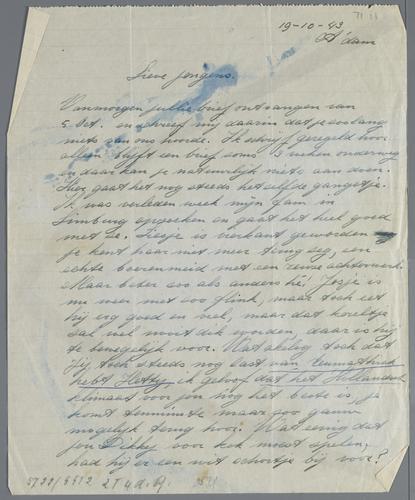 19-10-43
A'dam
Lieve jongens.
Vanmorgen jullie brief ontvangen van
5 Oct. en schreef mij daarin dat je zoolang
niets van ons hoorde. Ik schrijf geregeld hoor
alleen blijft een brief soms 3 weken onderweg
en daar kan je natuurlijk niets aan doen.
Hier gaat het nog steeds het zelfde gangetje.
Ik was verleden week mijn fam in
Limburg opzoeken en gaat het heel goed
met ze. is vierkant geworden
je kent haar niet meer terug zeg, een
echte boerenmeid met een achterwerk.
Maar beter zoo als anders hè! is
nu weer met zoo flink, maar toch eet
hij erg goed en veel, maar dat
zal wel nooit dik worden, daar is hij
te bewegelijk voor. Wat akelig toch dat
jij toch steeds nog last van reumathiek
hebt Hetty ik geloof dat het Hollandsch
klimaat voor jou nog het beste is, je
komt tenminste maar zoo gauw
mogelijk terug hoor. Wat eenig dat
jou Dikky voor kok moest spelen,
had hij er een wit schortje bij voor?
5722/5512 2T4d.19.